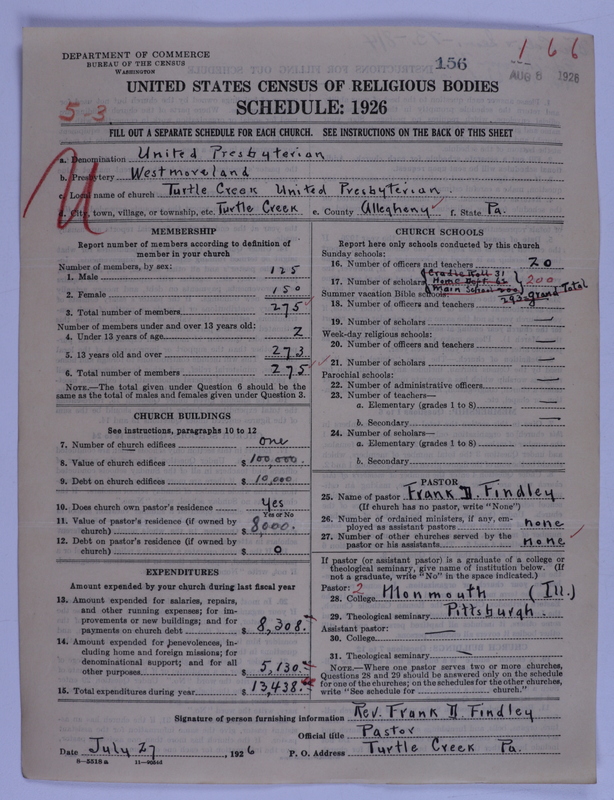 DEPARTMENT OF COMMERCE
BUREAU OF THE CENSUS
WASHINGTON
156
166
AUG 8 1926
UNITED STATES CENSUS OF RELIGIOUS BODIES
SCHEDULE: 1926
5-3
FILL OUT A SEPARATE SCHEDULE FOR EACH CHURCH. SEE INSTRUCTIONS ON THE BACK OF THIS SHEET
a. Denomination United Presbyterian
b. Presbytery Westmoreland
c. Local name of church Turtle Creek United Presbyterian.
d. City, town, village, or township, etc. Turtle Creek e. County Allegheny f. State Pa.
MEMBERSHIP
Report number of members according to definition of
member in your church
Number of members, by sex:
1. Male 125
2. Female 150
3. Total number of members 275
Number of members under and over 13 years old:
4. Under 13 years of age 2
5. 13 years old and over 273
6. Total number of members 275
NOTE.—The total given under Question 6 should be the
same as the total of males and females given under Question 3.
CHURCH BUILDINGS
See instructions, paragraphs 10 to 12
7. Number of church edifices one
8. Value of church edifices $100,000.
9. Debt on church edifices $10,000
10. Does church own pastor's residence yes
Yes or No
11. Value of pastor's residence (if owned by
church) $8000.
12. Debt on pastor's residence (if owned by
church) $0
EXPENDITURES
Amount expended by your church during last fiscal year
13. Amount expended for salaries, repairs,
and other running expenses; for im-
provements or new buildings; and for
payments on church debt $8,308.
14. Amount expended for benevolences, in-
cluding home and foreign missions; for
denominational support; and for all
other purposes $5,130.
15. Total expenditures during year $13,438.
CHURCH SCHOOLS
Report here only schools conducted by this church
Sunday schools:
16. Number of officers and teachers 20
17. Number of scholars Cradle Roll 31
Home Dept. 62
Main School 200
200
293 grand Total
Summer vacation Bible schools:
18. Number of officers and teachers
19. Number of scholars —
Week-day religious schools:
20. Number of officers and teachers —
21. Number of scholars —
Parochial schools:
22. Number of administrative officers —
23. Number of teachers—
a. Elementary (grades 1 to 8) —
b. Secondary —
24. Number of scholars—
a. Elementary (grades 1 to 8) —
b. Secondary —
PASTOR
25. Name of pastor Frank D. Findley
(If church has no pastor, write "None")
26. Number of ordained ministers, if any, em-
ployed as assistant pastors none
27. Number of other churches served by the
pastor or his assistants none
If pastor (or assistant pastor) is a graduate of a college or
theological seminary, give name of institution below. (If
not a graduate, write "No" in the space indicated.)
Pastor: 2
28. College Monmouth (Ill.)
29. Theological seminary Pittsburgh.
Assistant pastor:
30. College —
31. Theological seminary —
NOTE.—Where one pastor serves two or more churches,
Questions 28 and 29 should be answered only on the schedule
for one of the churches; on the schedules for the other churches,
write "See schedule for church."
Signature of person furnishing information Rev. Frank D Findley
Official title Pastor
Date July 27, 1926 P. O. Address Turtle Creek Pa.
8—5518a 11—9054d